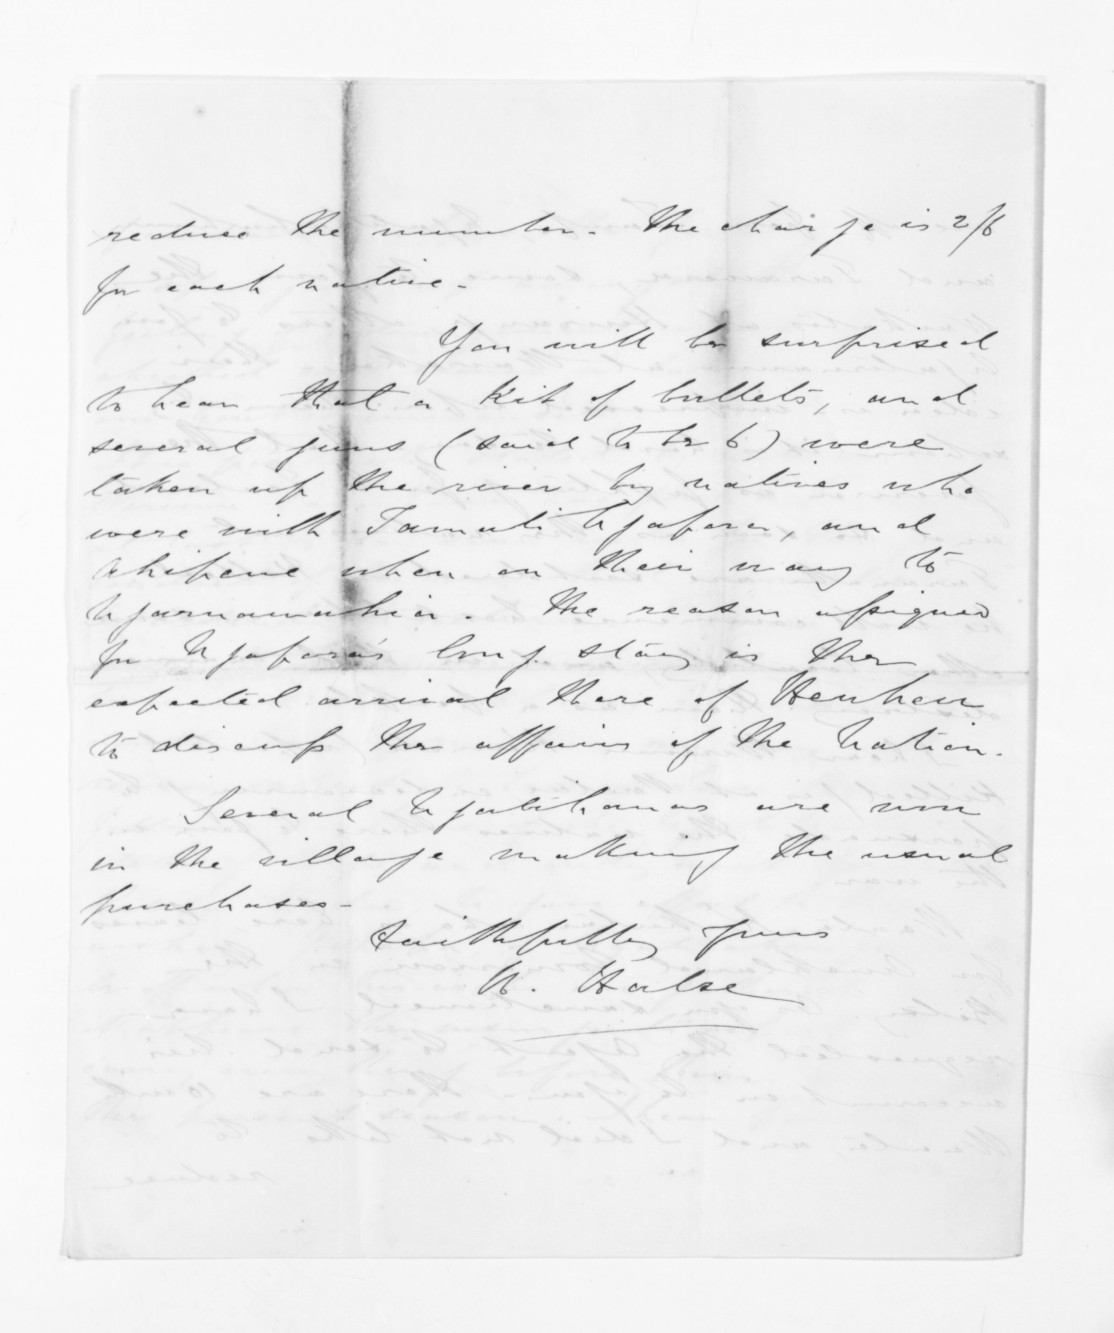 reduce the number. The charge is 2/6
for each native.
You will be surprised
to hear that a Kit of bullets, and
several guns (said to be 6) were
taken up the river by natives who
were with Tamati Ngapora, and
when on their way to
Ngaruawahia. The reason assigned
for Ngapora's long stay is the
expected arrival there of Heuheu
to discuss the affairs of the Nation.
Several Ngatihauas are now
in the village making the usual
purchases.
Faithfully yours
H. Halse